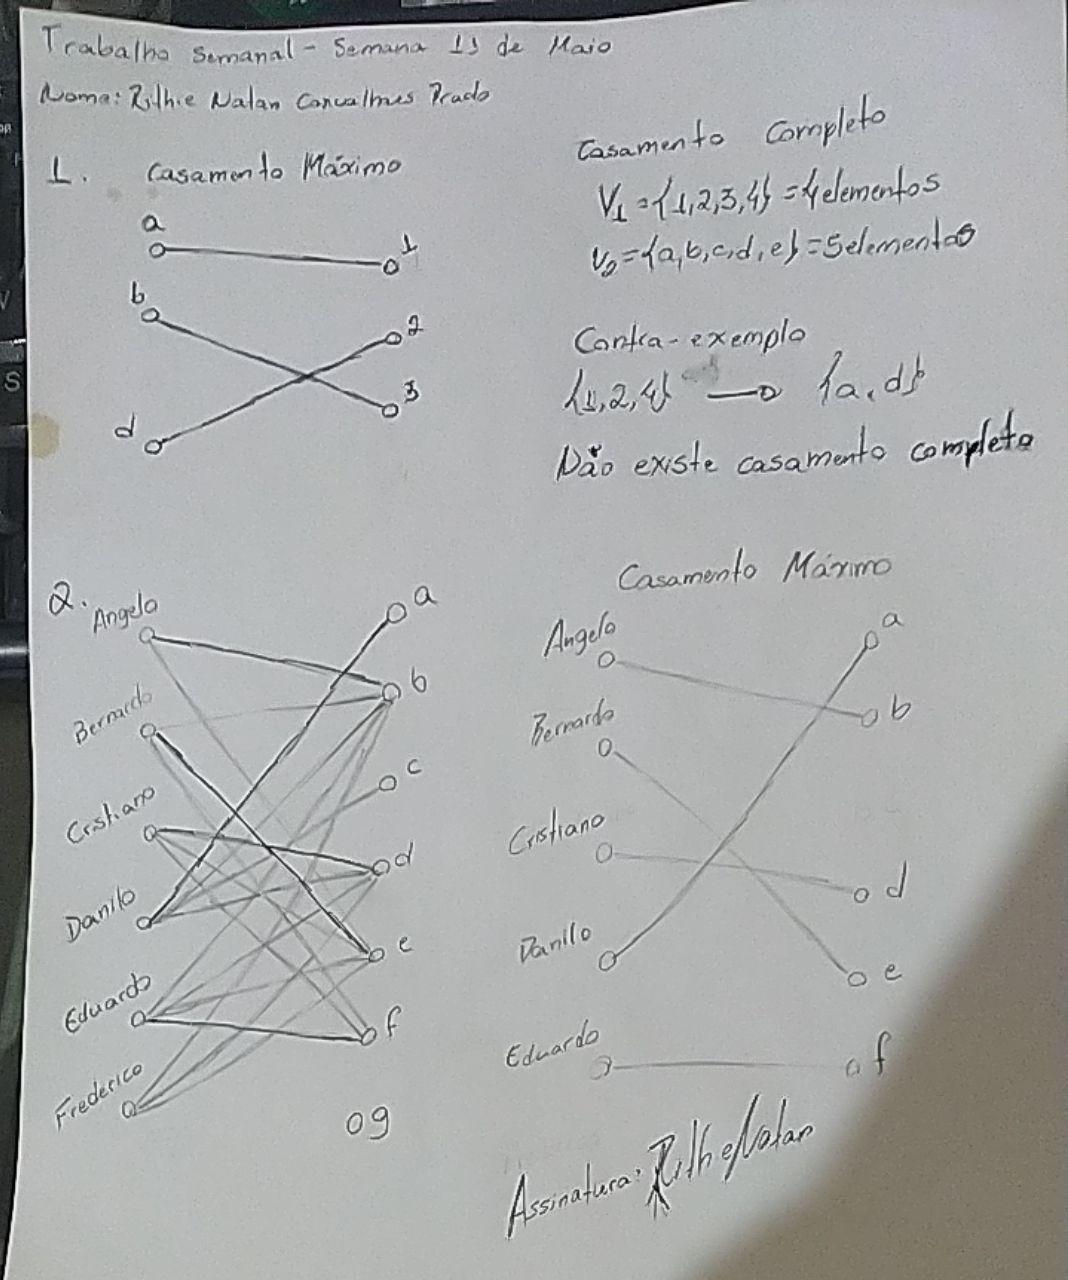 Trabalho Semanal - Semana 11 de Maio
Nome: Rilhie Natan Carvalhaes Prado
1. Casamento Máximo
a
1
b
2
3
d
Casamento Completo
V1 = {1,2,3,4} = 4 elementos
V2 = {a,b,c,d,e} = 5 elementos
Contra-exemplo
{1,2,4} → {a,d}
Não existe casamento completo
2.
Angelo
a
b
Bernardo
c
Cristiano
d
Danilo
e
Eduardo
f
Frederico
og
Casamento Máximo
Angelo
a
b
Bernardo
Cristiano
d
Danilo
e
Eduardo
f
Assinatura: Rilhie Natan